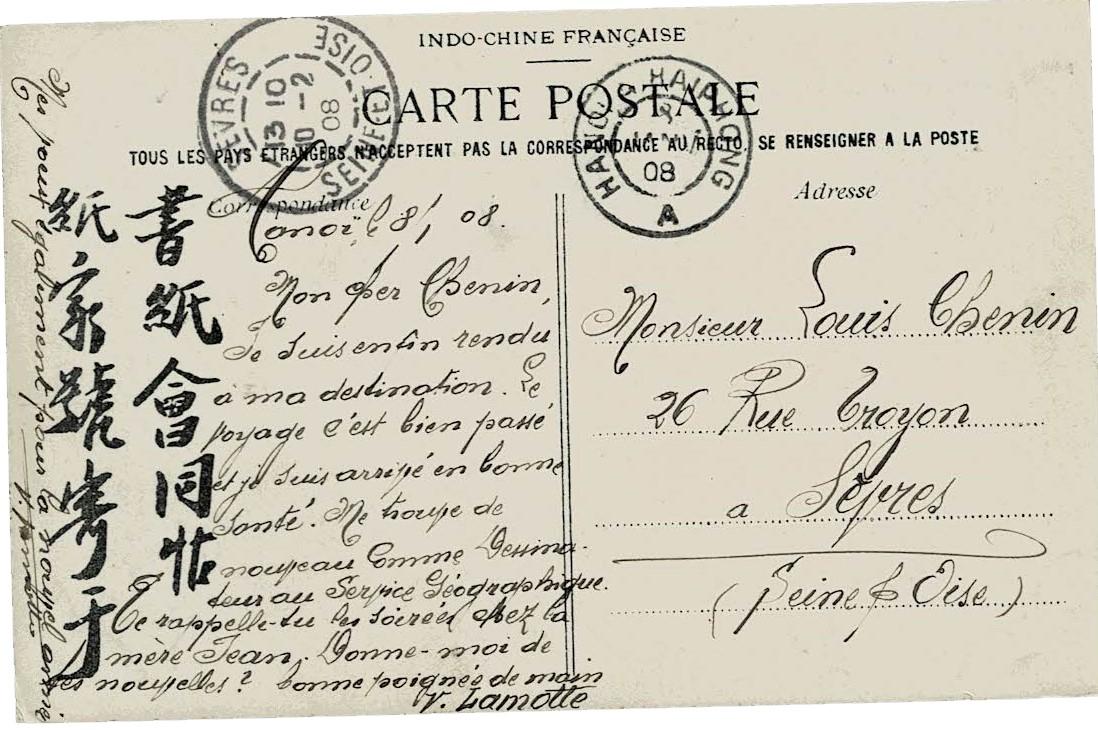 INDO-CHINE FRANÇAISE
CARTE POSTALE
TOUS LES PAYS ETRANGERS N'ACCEPTENT PAS LA CORRESPONDANCE AU RECTO, SE RENSEIGNER A LA POSTE
SÈVRES
13 10
10 -2
08
SEINE-ET-OISE
HANOI A HAIPHONG
8
JANV
08
A
Correspondance
Adresse
Hanoï 8/1 08.
Mon cher Chenin,
Je suis enfin rendu
à ma destination. Le
voyage c'est bien passé
et je suis arrivé en bonne
santé. Me trouve de
nouveau comme Dessina-
teur au Service Géographique.
Te rappelle-tu les soirées chez la
mère Jean. Donne-moi de
tes nouvelles? bonne poignée de main
V. Lamotte
Mes voeux également pour la nouvel année
V. Lamotte
書紙會同帖
紙家號寄于
Monsieur Louis Chenin
26 Rue Troyon
a Sèvres
(Seine & Oise)